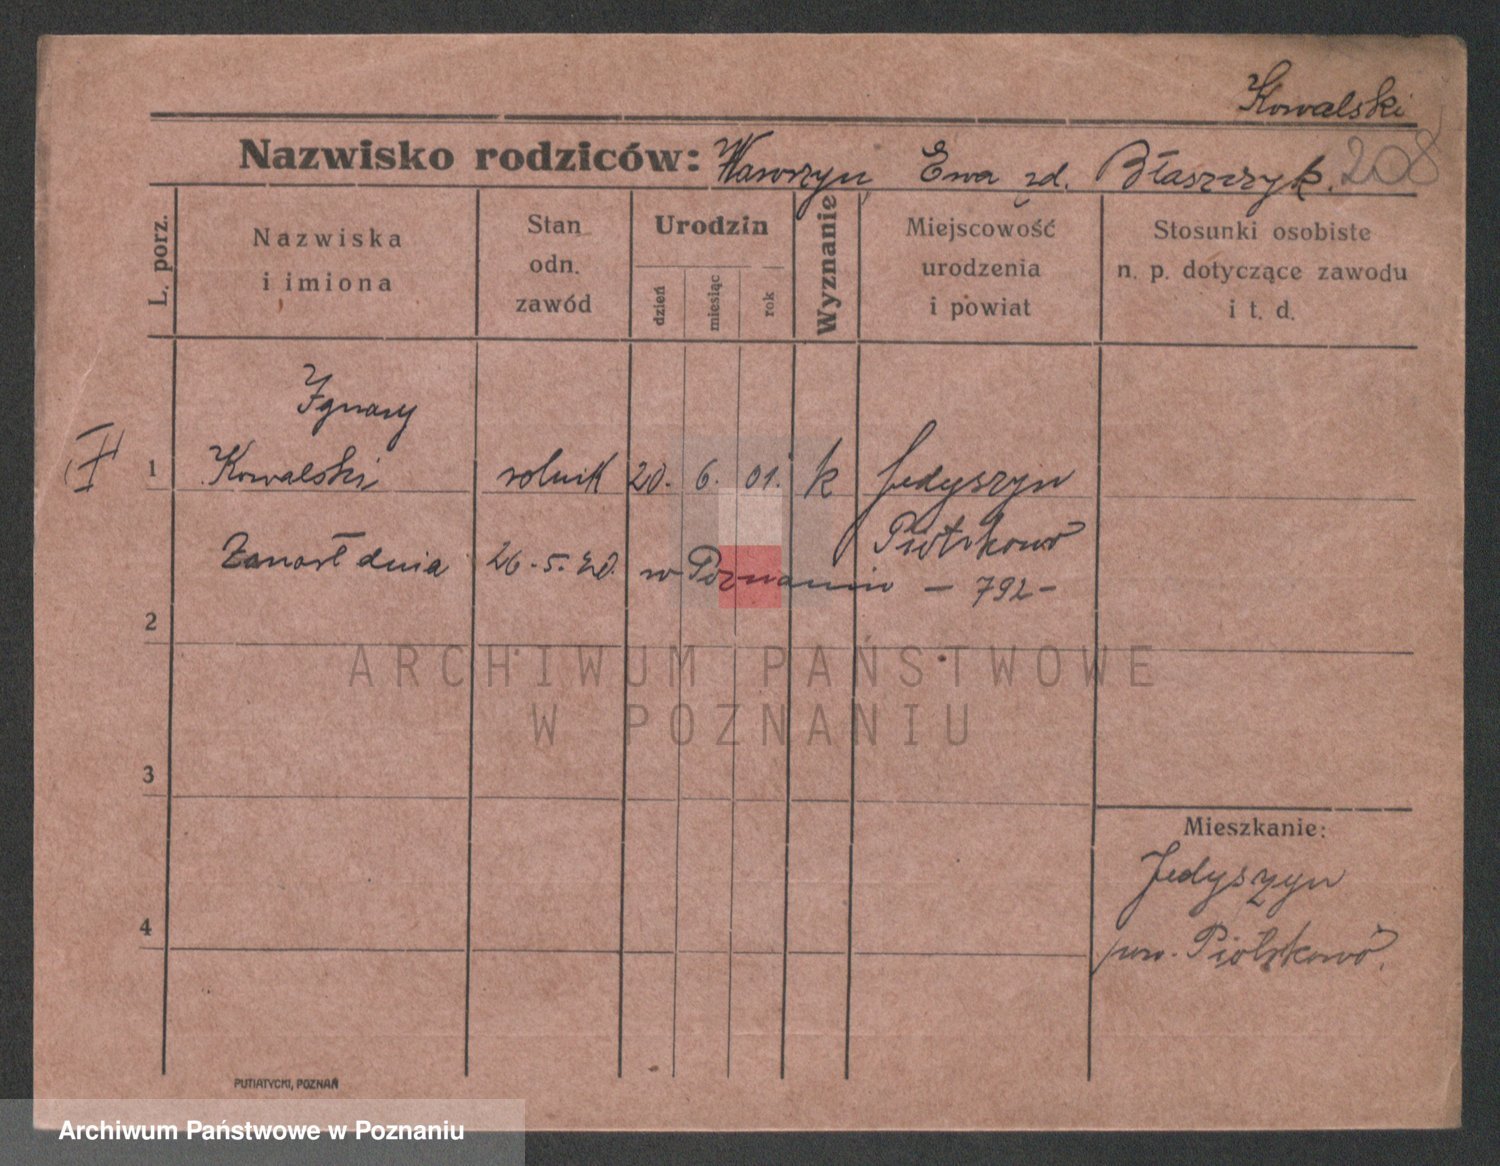 Kowalski
Nazwisko rodziców: Wawrzyn Ewa zd. Błaszczyk. 208
L. porz.
Nazwiska
i imiona
Stan
odn.
zawód
Urodzin
dzień
miesiąc
rok
Wyznanie
Miejscowość
urodzenia
i powiat
Stosunki osobiste
n. p. dotyczące zawodu
i t. d.
Ignacy
1 Kowalski rolnik 20. 6. 01. k Jedyszyn
Piotrkowo
Zmarł dnia 26.-5.40. w Poznaniu – 792 –
2
ARCHIWUM PAŃSTWOWE
W POZNANIU
3
Mieszkanie:
Jedyszyn
4
pow. Piotrkowo.
PUTIATYCKI, POZNAŃ
Archiwum Państwowe w Poznaniu